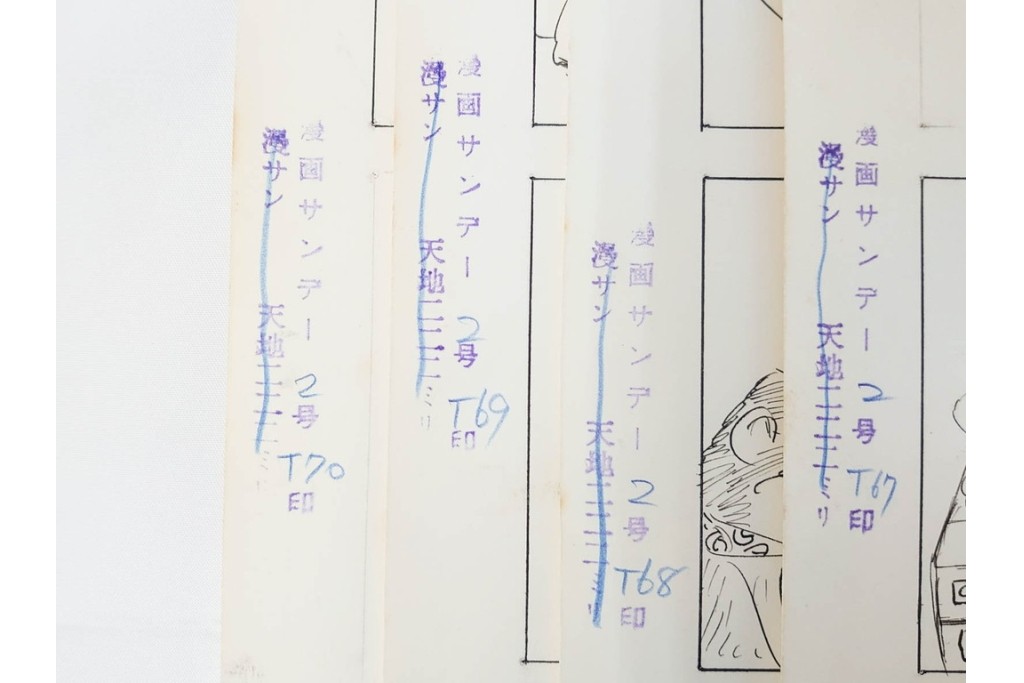 漫画サンデー 2号 T67 印
漫サン 天地二二二ミリ
漫画サンデー 2号 T68 印
漫サン 天地二二二ミリ
漫画サンデー 2号 T69 印
漫サン 天地二二二ミリ
漫画サンデー 2号 T70 印
漫サン 天地二二二ミリ